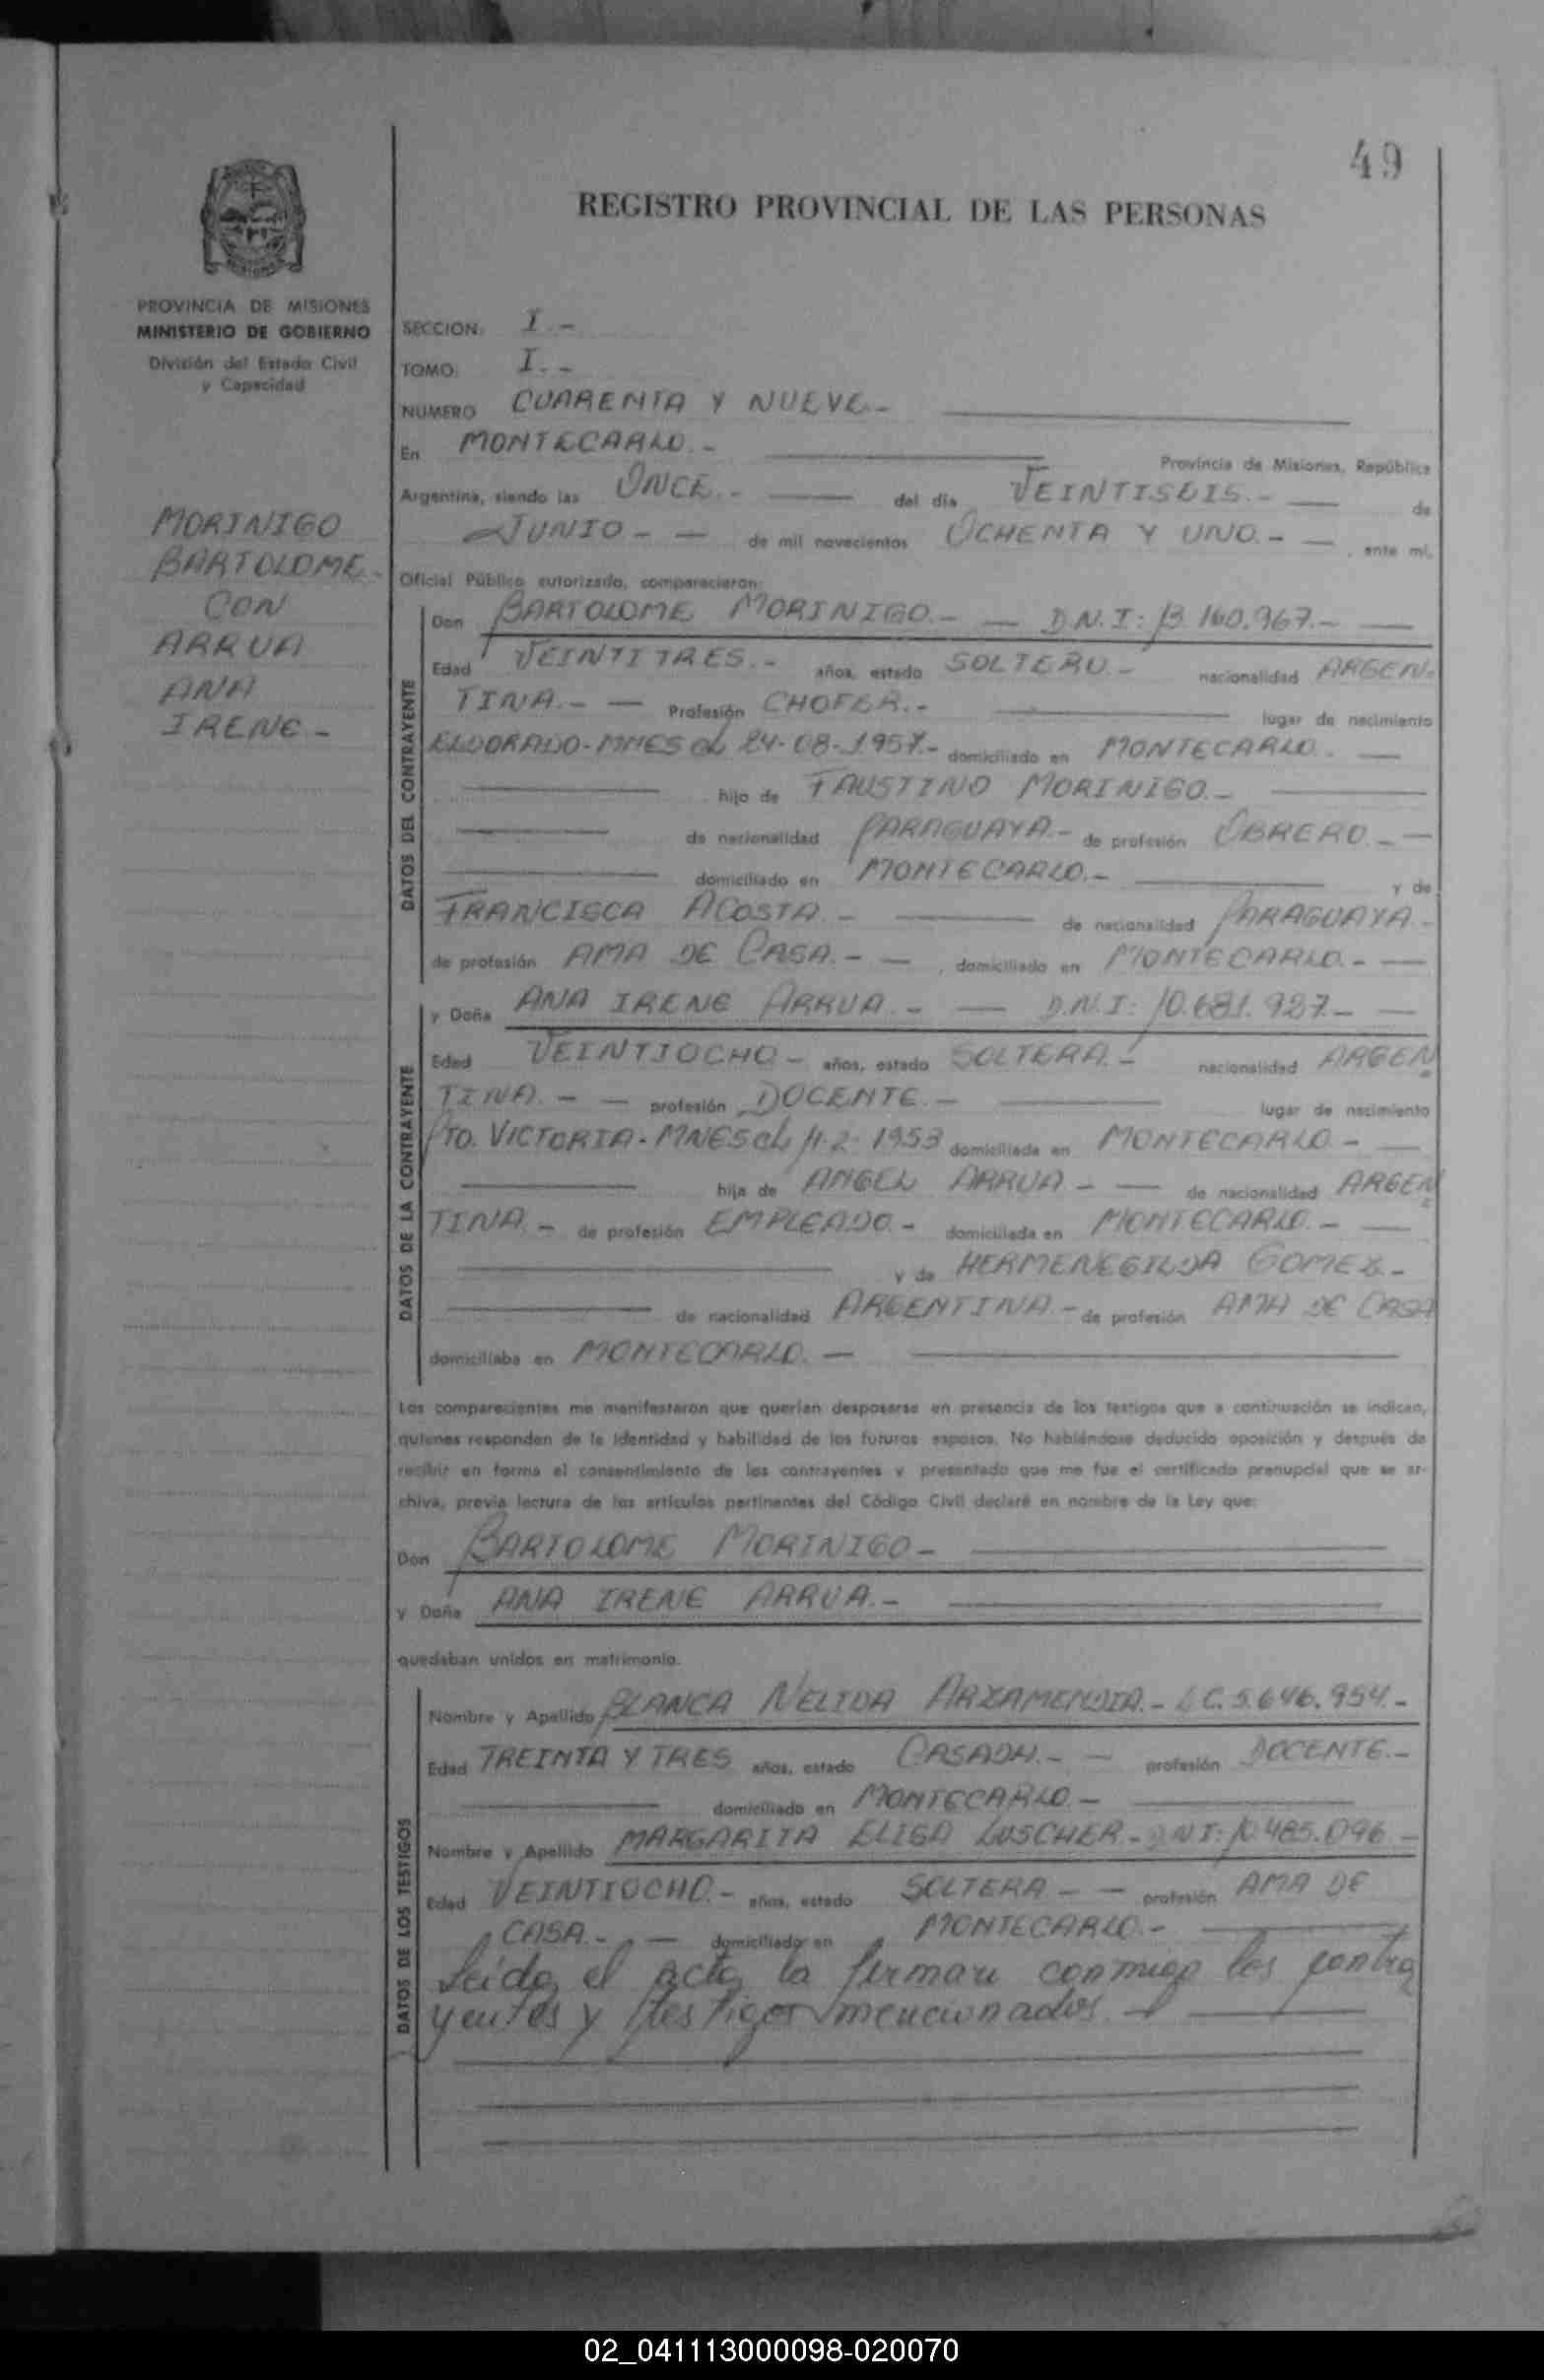 49
REGISTRO PROVINCIAL DE LAS PERSONAS
PROVINCIA DE MISIONES
MINISTERIO DE GOBIERNO
División del Estado Civil
y Capacidad
MORINIGO
BARTOLOME-
CON
ARRUA
ANA
IRENE-
SECCION: I.-
TOMO: I.-
NUMERO CUARENTA Y NUEVE-
En MONTECARLO.- Provincia de Misiones, República
Argentina, siendo las ONCE.- del día VEINTISEIS.- de
JUNIO - - de mil novecientos OCHENTA Y UNO.- - , ante mí,
Oficial Público autorizado, comparecieron:
DATOS DEL CONTRAYENTE
Don BARTOLOME MORINIGO.- - D.N.I: 13.160.967.-
Edad VEINTITRES.- años, estado SOLTERO.- nacionalidad ARGEN-
TINA.- - Profesión CHOFER.- lugar de nacimiento
ELDORADO-MNES el 24-08-1957.- domiciliado en MONTECARLO.
hijo de FAUSTINO MORINIGO.-
de nacionalidad PARAGUAYA.- de profesión OBRERO.-
domiciliado en MONTECARLO.- y de
FRANCISCA ACOSTA.- de nacionalidad PARAGUAYA.-
de profesión AMA DE CASA.- - , domiciliada en MONTECARLO.-
DATOS DE LA CONTRAYENTE
y Doña ANA IRENE ARRUA.- - D.N.I: 10.681.927.-
Edad VEINTIOCHO- años, estado SOLTERA.- nacionalidad ARGEN
TINA.- - profesión DOCENTE.- lugar de nacimiento
PTO. VICTORIA-MNES el 11-2-1953 domiciliada en MONTECARLO-
hija de ANGEL ARRUA- - de nacionalidad ARGEN
TINA.- de profesión EMPLEADO.- domiciliada en MONTECARLO.-
y de HERMENEGILDA GOMEZ.-
de nacionalidad ARGENTINA.- de profesión AMA DE CASA
domiciliaba en MONTECARLO.-
Los comparecientes me manifestaron que querían desposarse en presencia de los testigos que a continuación se indican,
quienes responden de la identidad y habilidad de los futuros esposos. No habiéndose deducido oposición y después de
recibir en forma el consentimiento de los contrayentes y presentado que me fue el certificado prenupcial que se ar-
chiva, previa lectura de los artículos pertinentes del Código Civil declaré en nombre de la Ley que:
Don BARTOLOME MORINIGO-
y Doña ANA IRENE ARRUA.-
quedaban unidos en matrimonio.
DATOS DE LOS TESTIGOS
Nombre y Apellido BLANCA NELIDA ARZAMENDIA.- L.C. 5.646.954.-
Edad TREINTA Y TRES años, estado CASADA.- - profesión DOCENTE.-
domiciliado en MONTECARLO.-
Nombre y Apellido MARGARITA ELISA LUSCHER- DNI: 10.485.096-
Edad VEINTIOCHO.- años, estado SOLTERA - - profesión AMA DE
CASA.- - domiciliado en MONTECARLO.-
Leída el acta la firman conmigo los contra
yentes y testigos mencionados.-
02_041113000098-020070